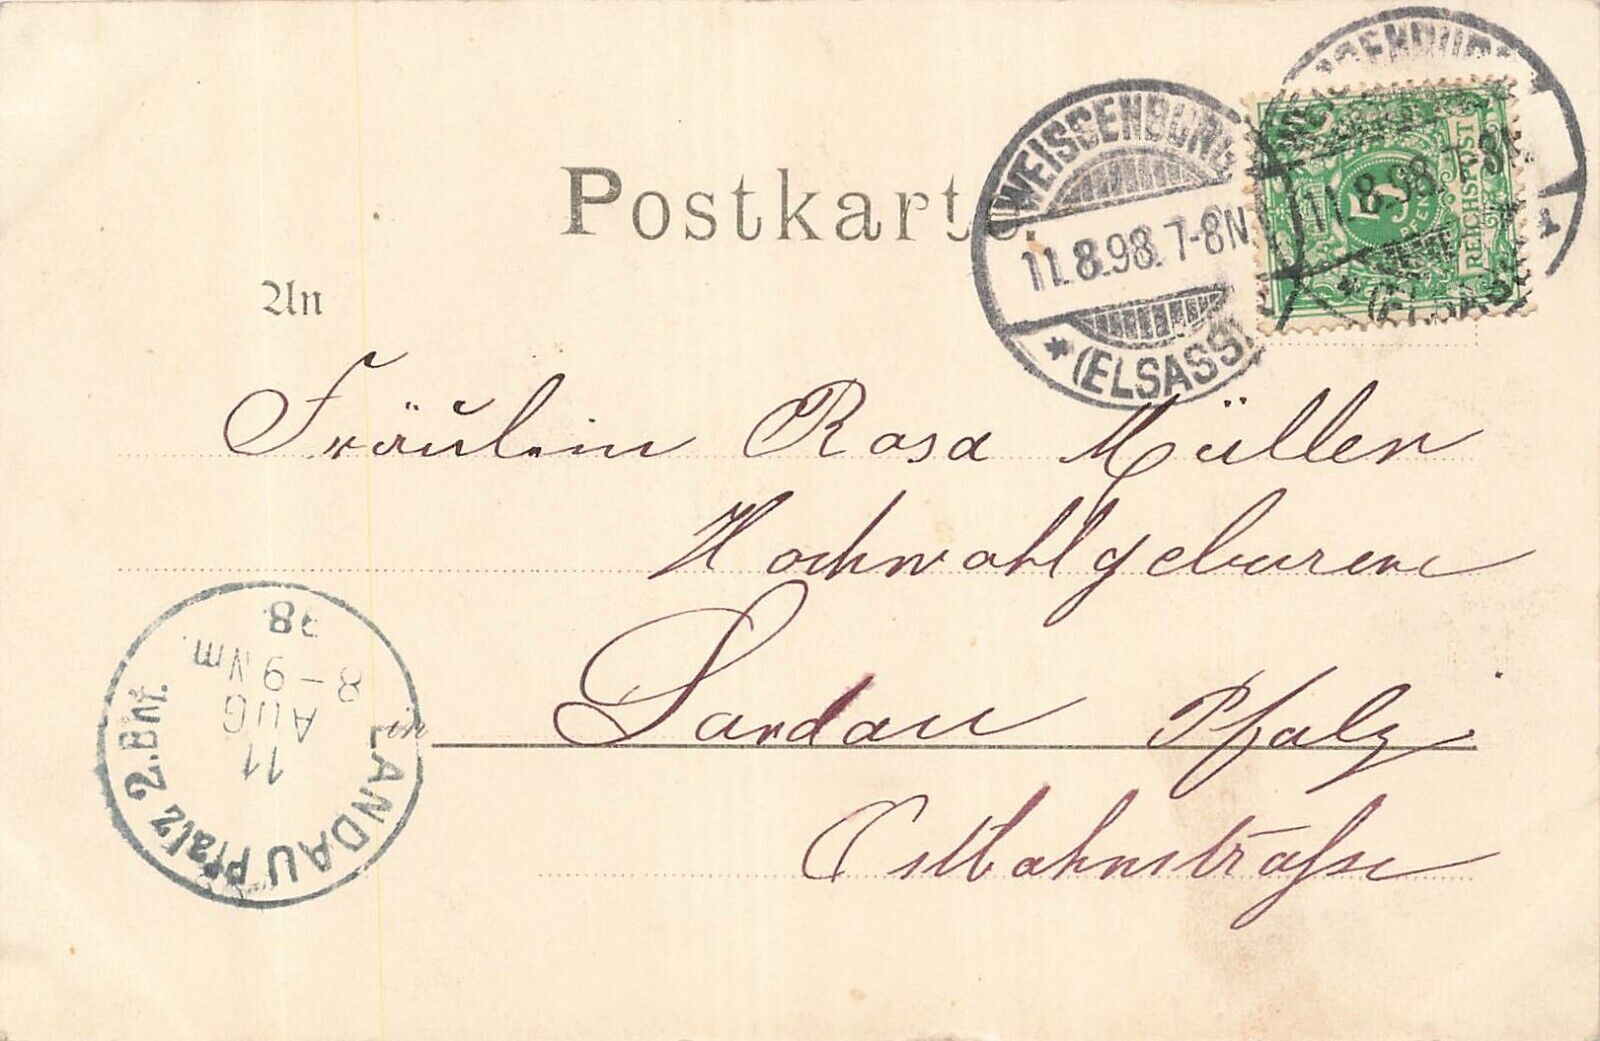 Postkarte.
WEISSENBURG
11.8.98.7-8N.
* (ELSASS)
WEISSENBURG
11.8.98.7-8N.
* (ELSASS) *
5
PFENNIG
REICHSPOST
An
Fräulein Rosa Müller
Hochwohlgeboren
in Landau Pfalz
Ostbahnstraße
LANDAU Pfalz 2.Bhf.
11
AUG
8-9Nm.
98